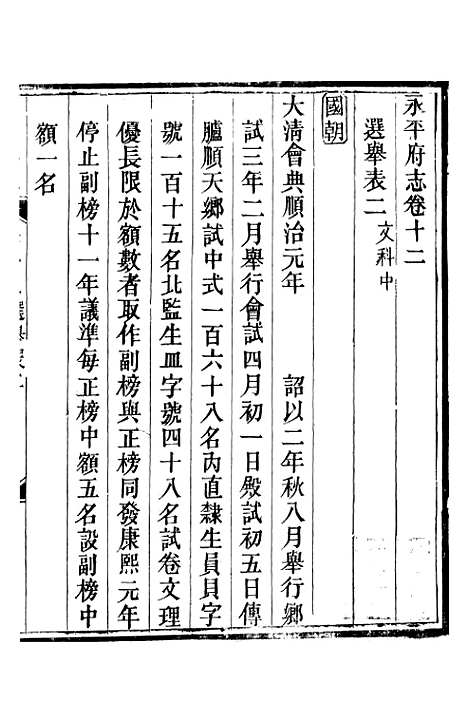 永平府志卷十二
選舉表二 文科中
國朝
大清會典順治元年 詔以二年秋八月舉行鄉
試三年二月舉行會試四月初一日殿試初五日傳
臚順天鄉試中式一百六十八名內直隸生員貝字
號一百十五名北監生皿字號四十八名試卷文理
優長限於額數者取作副榜與正榜同發康熙元年
停止副榜十一年議準每正榜中額五名設副榜中
額一名